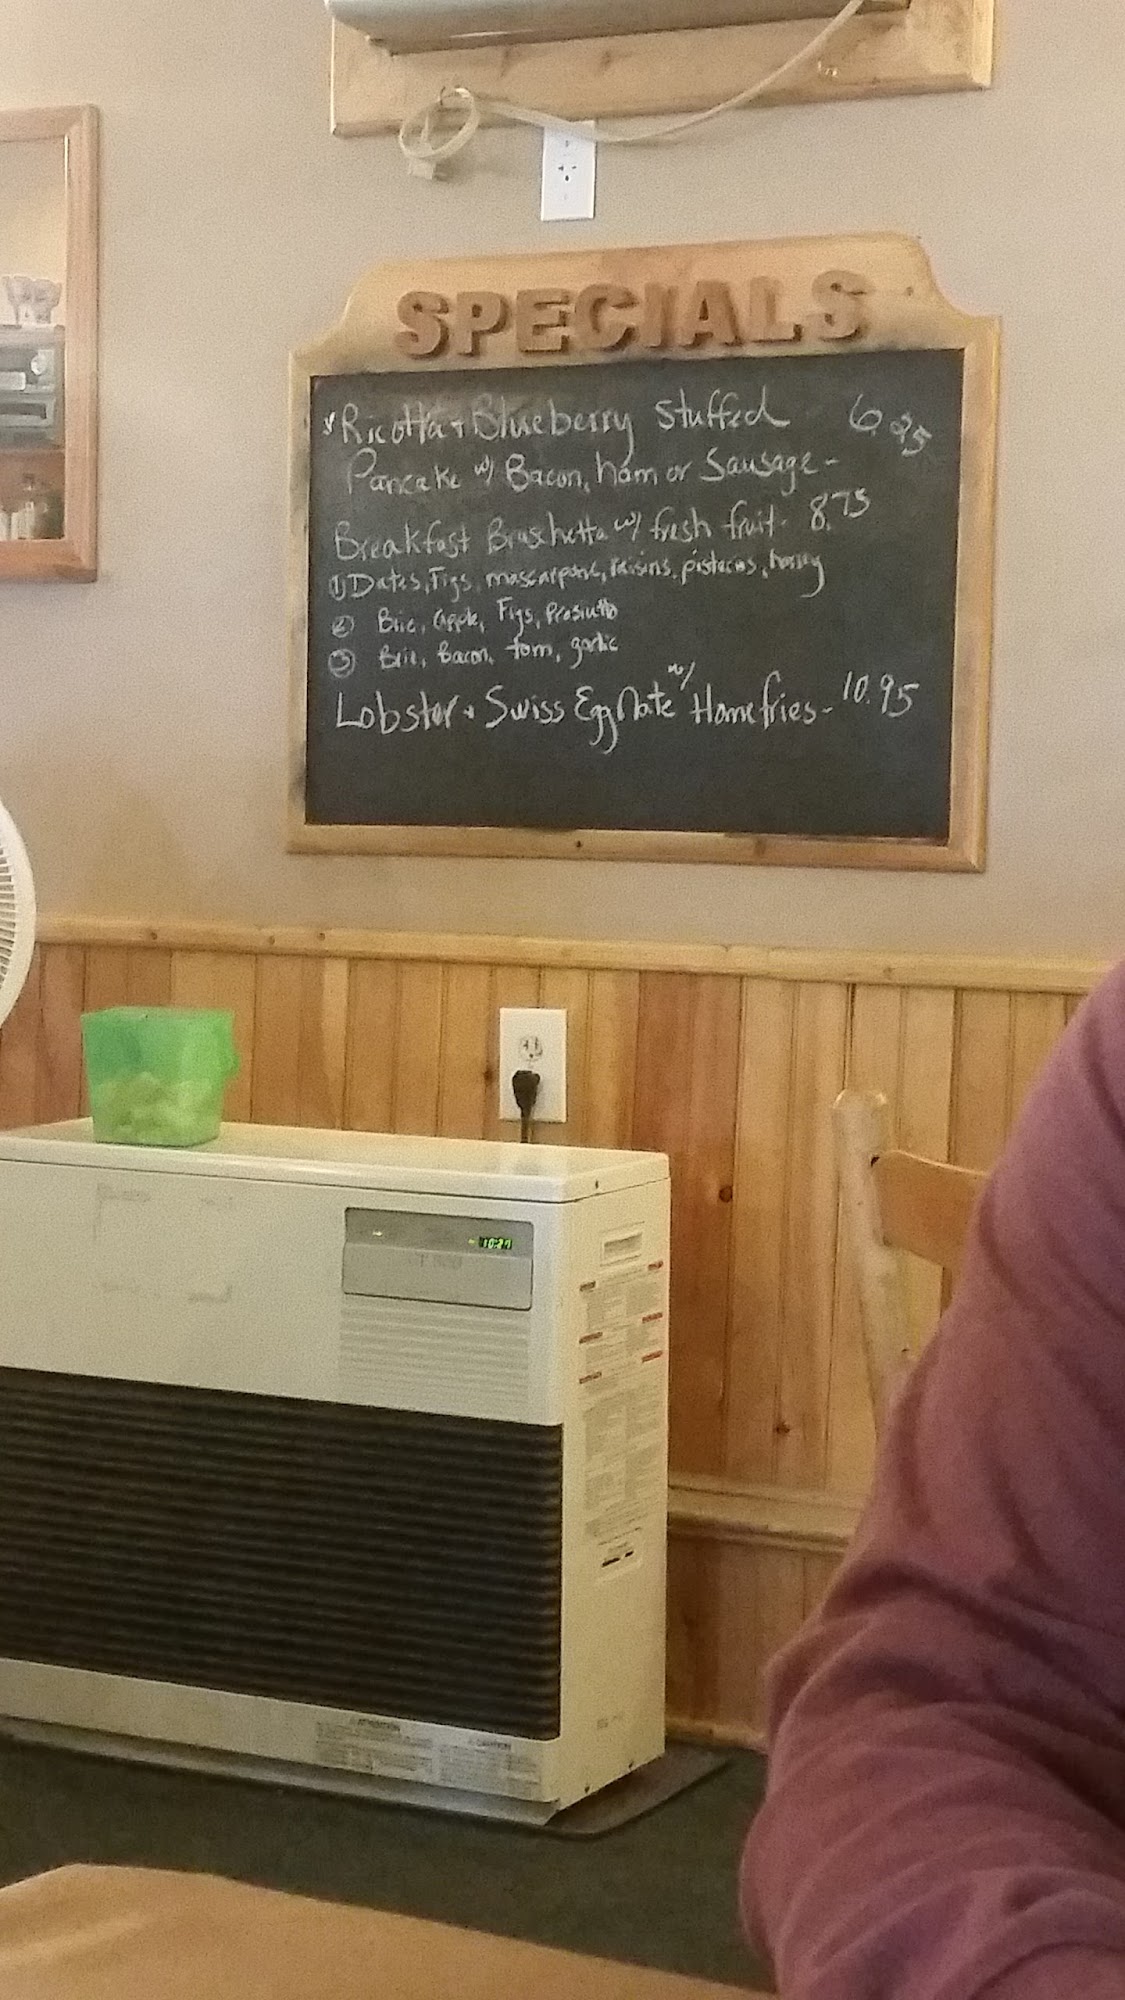 SPECIALS
Ricotta + Blueberry Stuffed 6.25
Pancake w/ Bacon, ham or Sausage -
Breakfast Brushetta w/ fresh fruit - 8.75
① Dates, Figs, mascarpone, raisins, pistacios, honey
② Brie, apple, Figs, Prosiutto
③ Brie, Bacon, tom, garlic
Lobster + Swiss Egg Mate w/ Homefries - 10.95
10:27
ATTENTION
CAUTION